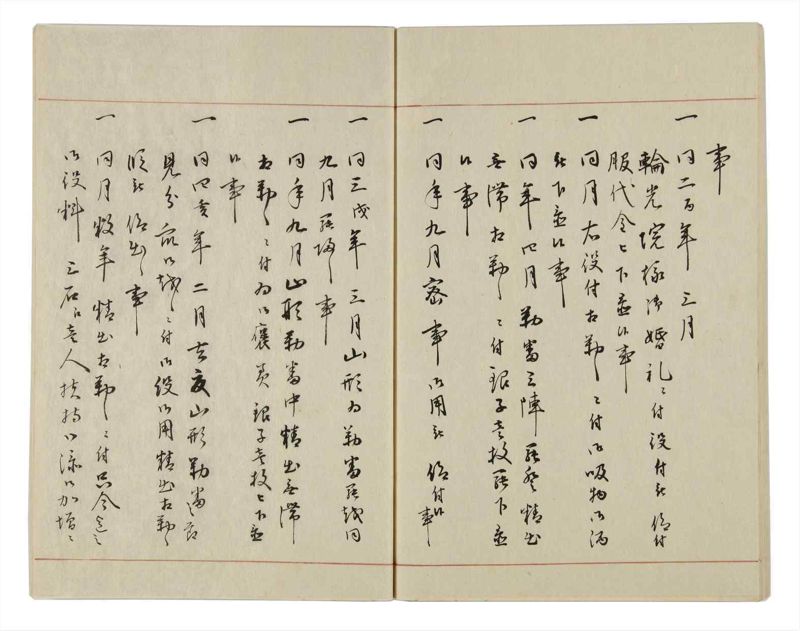 事
一 同二酉年 三月
輪光院様御婚礼ニ付役付被 仰付
服代金被下置候事
一 同月右役付相勤候ニ付御吸物御酒
被下置候事
一 同年四月勤番三陣罷登精出
無滞相勤候ニ付銀子壱枚被下置
候事
一 同年九月密事御用被 仰付候事
一 同三戌年 三月山形為勤番罷越同
九月罷帰候事
一 同年九月山形勤番中精出無滞
相勤候ニ付為御褒美銀子壱枚被下置
候事
一 同四亥年 二月去夏山形勤番之節
見分 罷越候ニ付御役御用精出相勤候
段被 仰出候事
一 同月数年 精出相勤候ニ付只今迄之
御役料 三石ニ壱人扶持御添御加増ニ